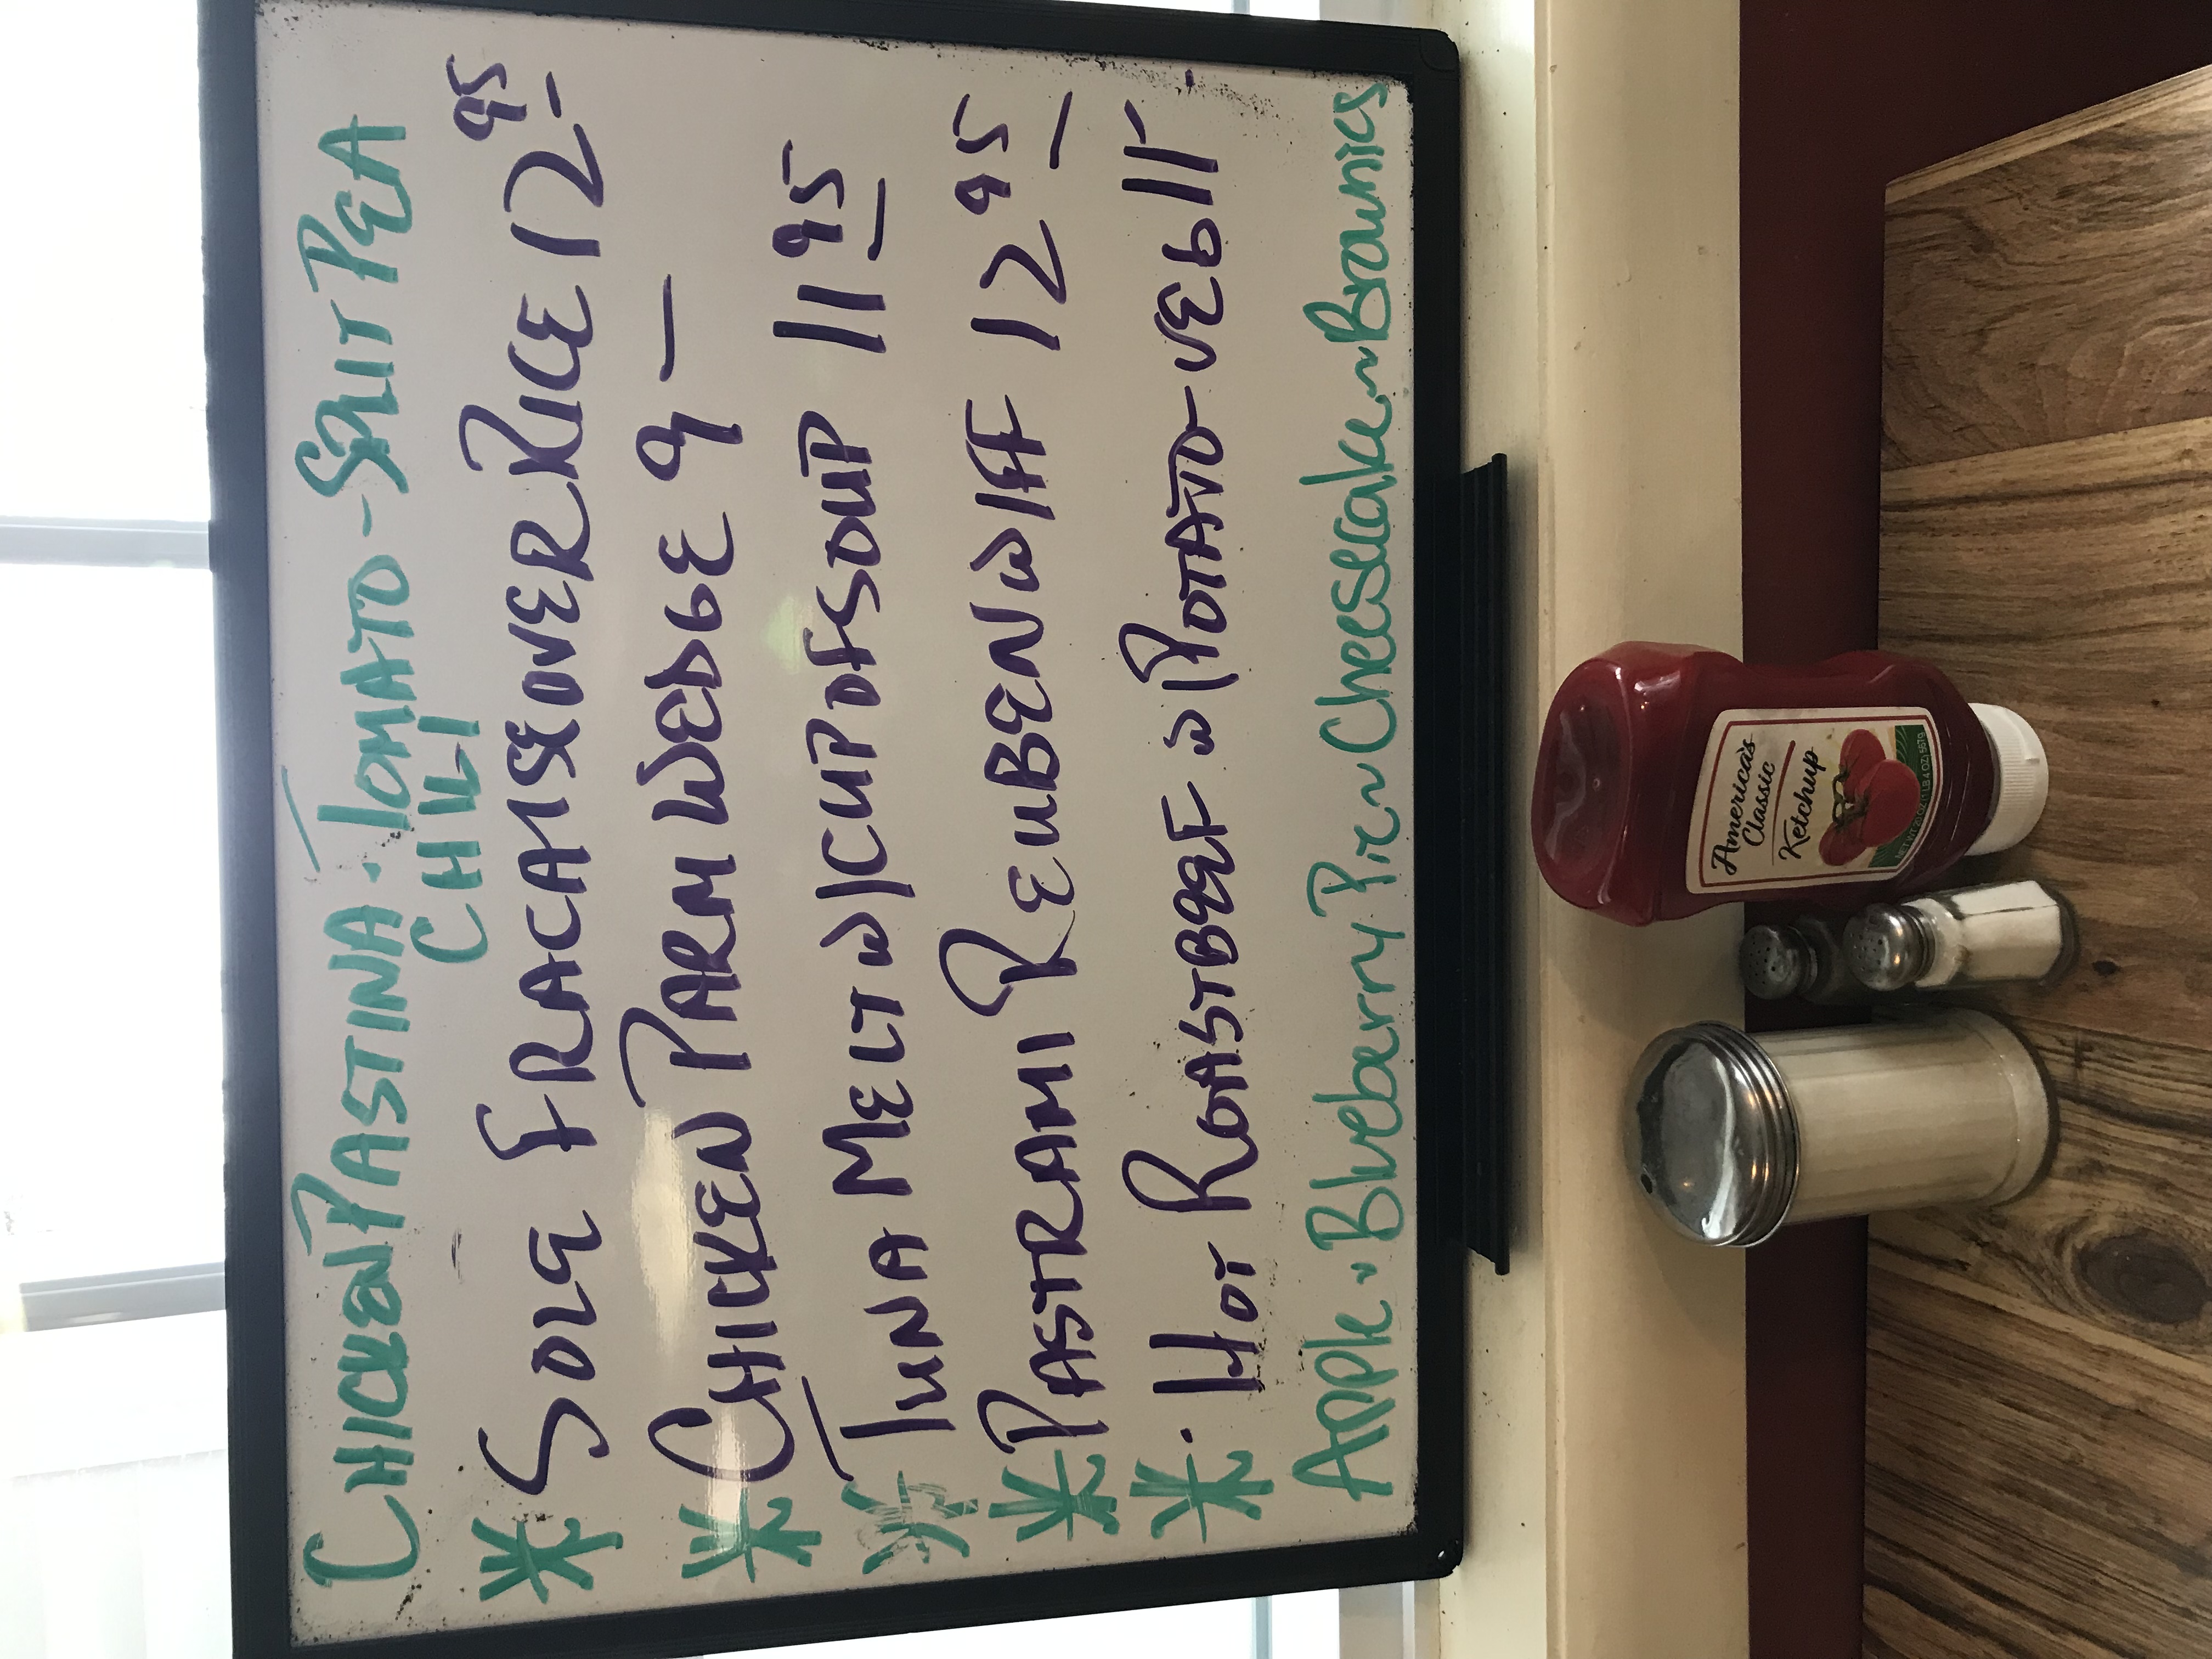 CHICKEN PASTINA · TOMATO - SPLIT PEA
CHILI
* SOLE FRACAISE OVER RICE 12 95
* CHICKEN PARM WEDGE 9 -
* TUNA MELT W/CUP OF SOUP 11 95
* PASTRAMI REUBEN W/FF 12 95
* · HOT ROASTBEEF W/POTATO-VEG 11 -
Apple ~ Blueberry Pie ~ Cheesecake ~ Brownies
America's
Classic
Ketchup
NET WT 20 OZ (1 LB 4 OZ) 567g